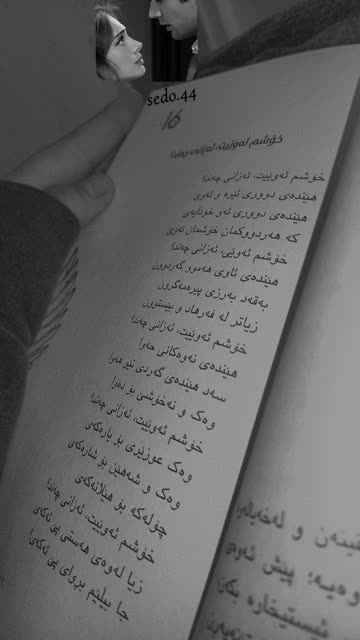 sedo.44
16
خۆشم ئەوێیت، ئەزانی چەند؟
خۆشم ئەوێیت، ئەزانی چەند؟
هێندەی دووری ئێرە و ئەوێ
هێندەی دووری ئەو خودایەی
کە هەردووکمان خۆشمان ئەوێ
خۆشم ئەوێی، ئەزانی چەند؟
هێندەی ئاوی هەموو گەردوون
بەقەد بەرزی پیرەمەگرون
زیاتر لە فەرهاد و بێستوون
خۆشم ئەوێیت، ئەزانی چەند؟
هێندەی نەوەکانی حەوا
سەد هێندەی گەردی نێو هەوا
وەک و نەخۆشێ بۆ دەوا
خۆشم ئەوێیت، ئەزانی چەند؟
وەک عوزێری بۆ یارەکەی
وەک و شەهێن بۆ شارەکەی
چۆلەکە بۆ هێلانەکەی
خۆشم ئەوێیت، ئەزانی چەند؟
زیا لەوەی هەستی پێ ئەکەی
جا بیڵێم بڕوای پێ ئەکەی؟
ێنەن و لەخەیاڵم
وەیە؛ پێش ئەوەی
ئستیخارە بکەن